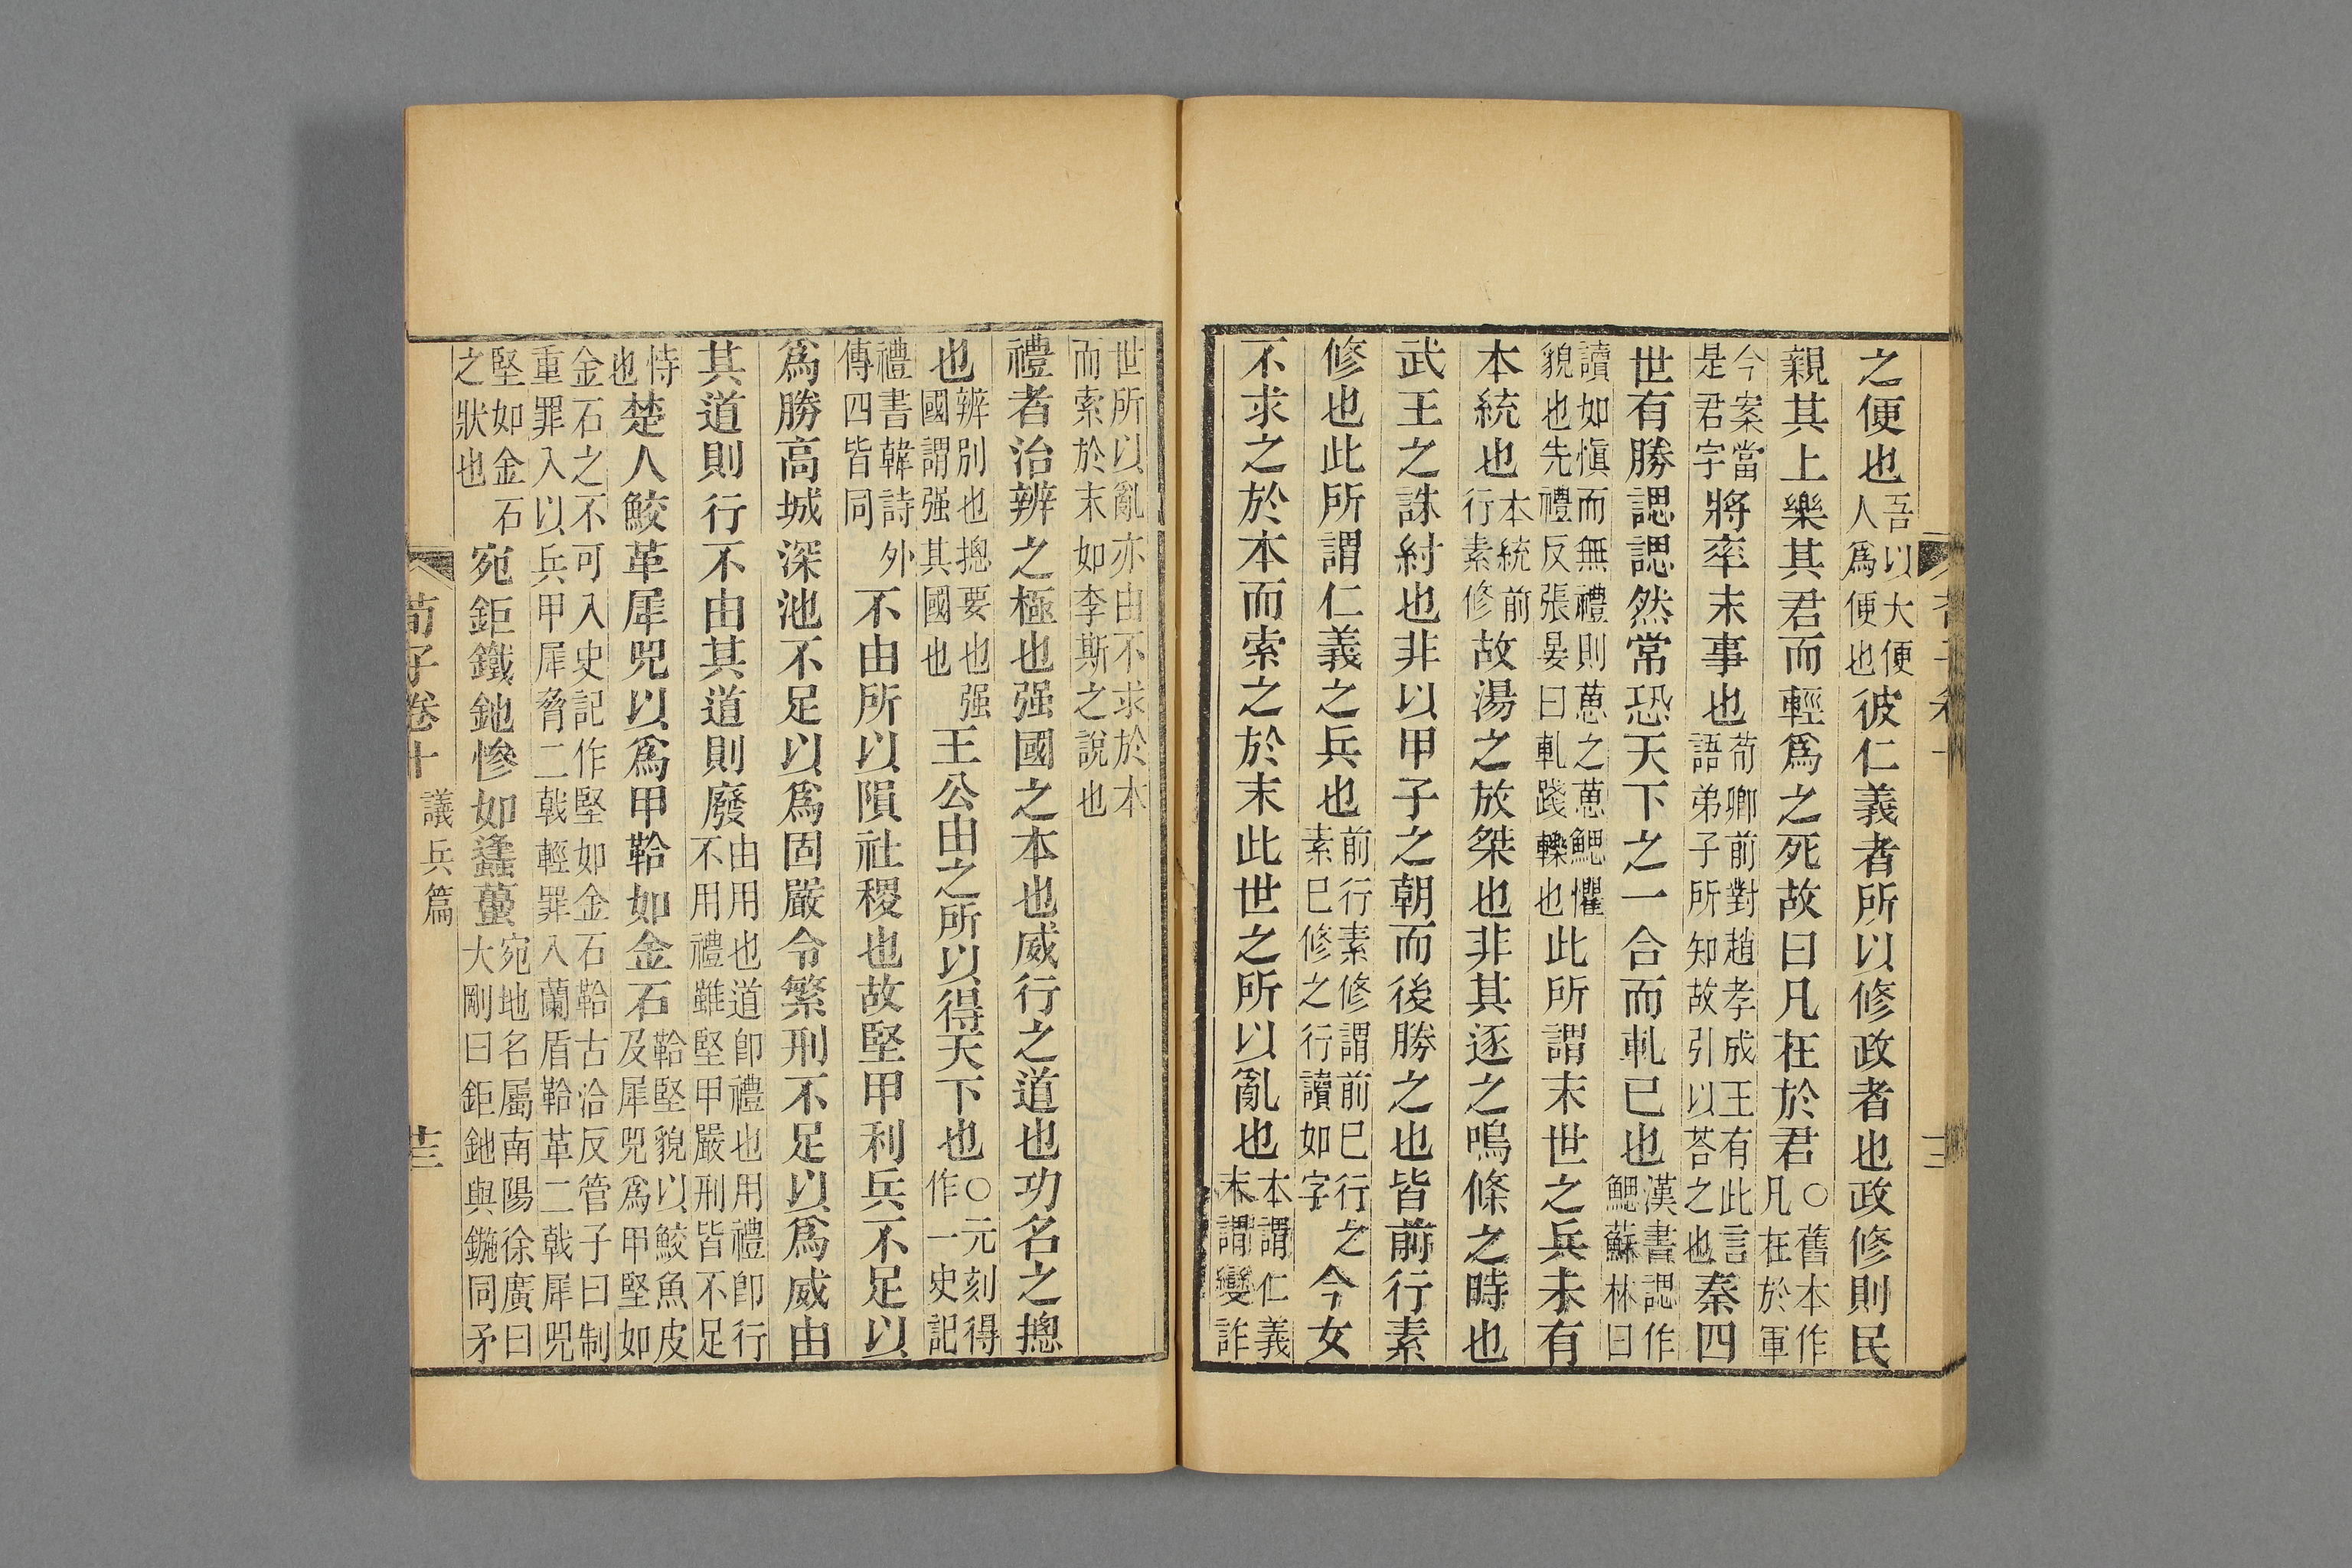 之便也吾以大便人爲便也彼仁義者所以修政者也政修則民
親其上樂其君而輕爲之死故曰凡在於君○舊本作凡在於軍
今案當是君字將率末事也荀卿前對趙孝成王有此言語弟子所知故引以荅之也秦四
世有勝諰諰然常恐天下之一合而軋己也漢書諰作鰓蘇林曰
讀如愼而無禮則葸之葸鰓懼貌也先禮反張晏曰軋踐轢也此所謂末世之兵未有
本統也本統前行素修故湯之放桀也非其逐之鳴條之時也
武王之誅紂也非以甲子之朝而後勝之也皆前行素
修也此所謂仁義之兵也前行素修謂前已行之素已修之行讀如字今女
不求之於本而索之於末此世之所以亂也本謂仁義末謂變詐
世所以亂亦由不求於本而索於末如李斯之說也
禮者治辨之極也强國之本也威行之道也功名之摠
也辨別也摠要也强國謂强其國也王公由之所以得天下也○元刻得作一史記
禮書韓詩外傳四皆同不由所以隕社稷也故堅甲利兵不足以
爲勝高城深池不足以爲固嚴令繁刑不足以爲威由
其道則行不由其道則廢由用也道卽禮也用禮卽行不用禮雖堅甲嚴刑皆不足
恃也楚人鮫革犀兕以爲甲鞈如金石鞈堅貌以鮫魚皮及犀兕爲甲堅如
金石之不可入史記作堅如金石鞈古洽反管子曰制重罪入以兵甲犀脅二戟輕罪入蘭盾鞈革二戟犀兕
堅如金石之狀也宛鉅鐵釶慘如蠭蠆宛地名屬南陽徐廣曰大剛曰鉅釶與鍦同矛
荀子卷十 議兵篇